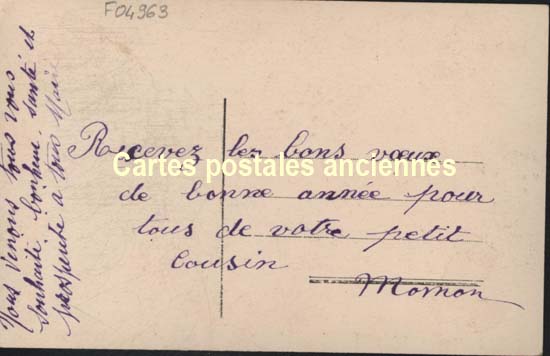 F04963
Recevez les bons vœux
Cartes postales anciennes
de bonne année pour
tous de votre petit
Cousin
Mornon
Nous venons tous vous
souhaité bonheur, santé et
prospérité a tous